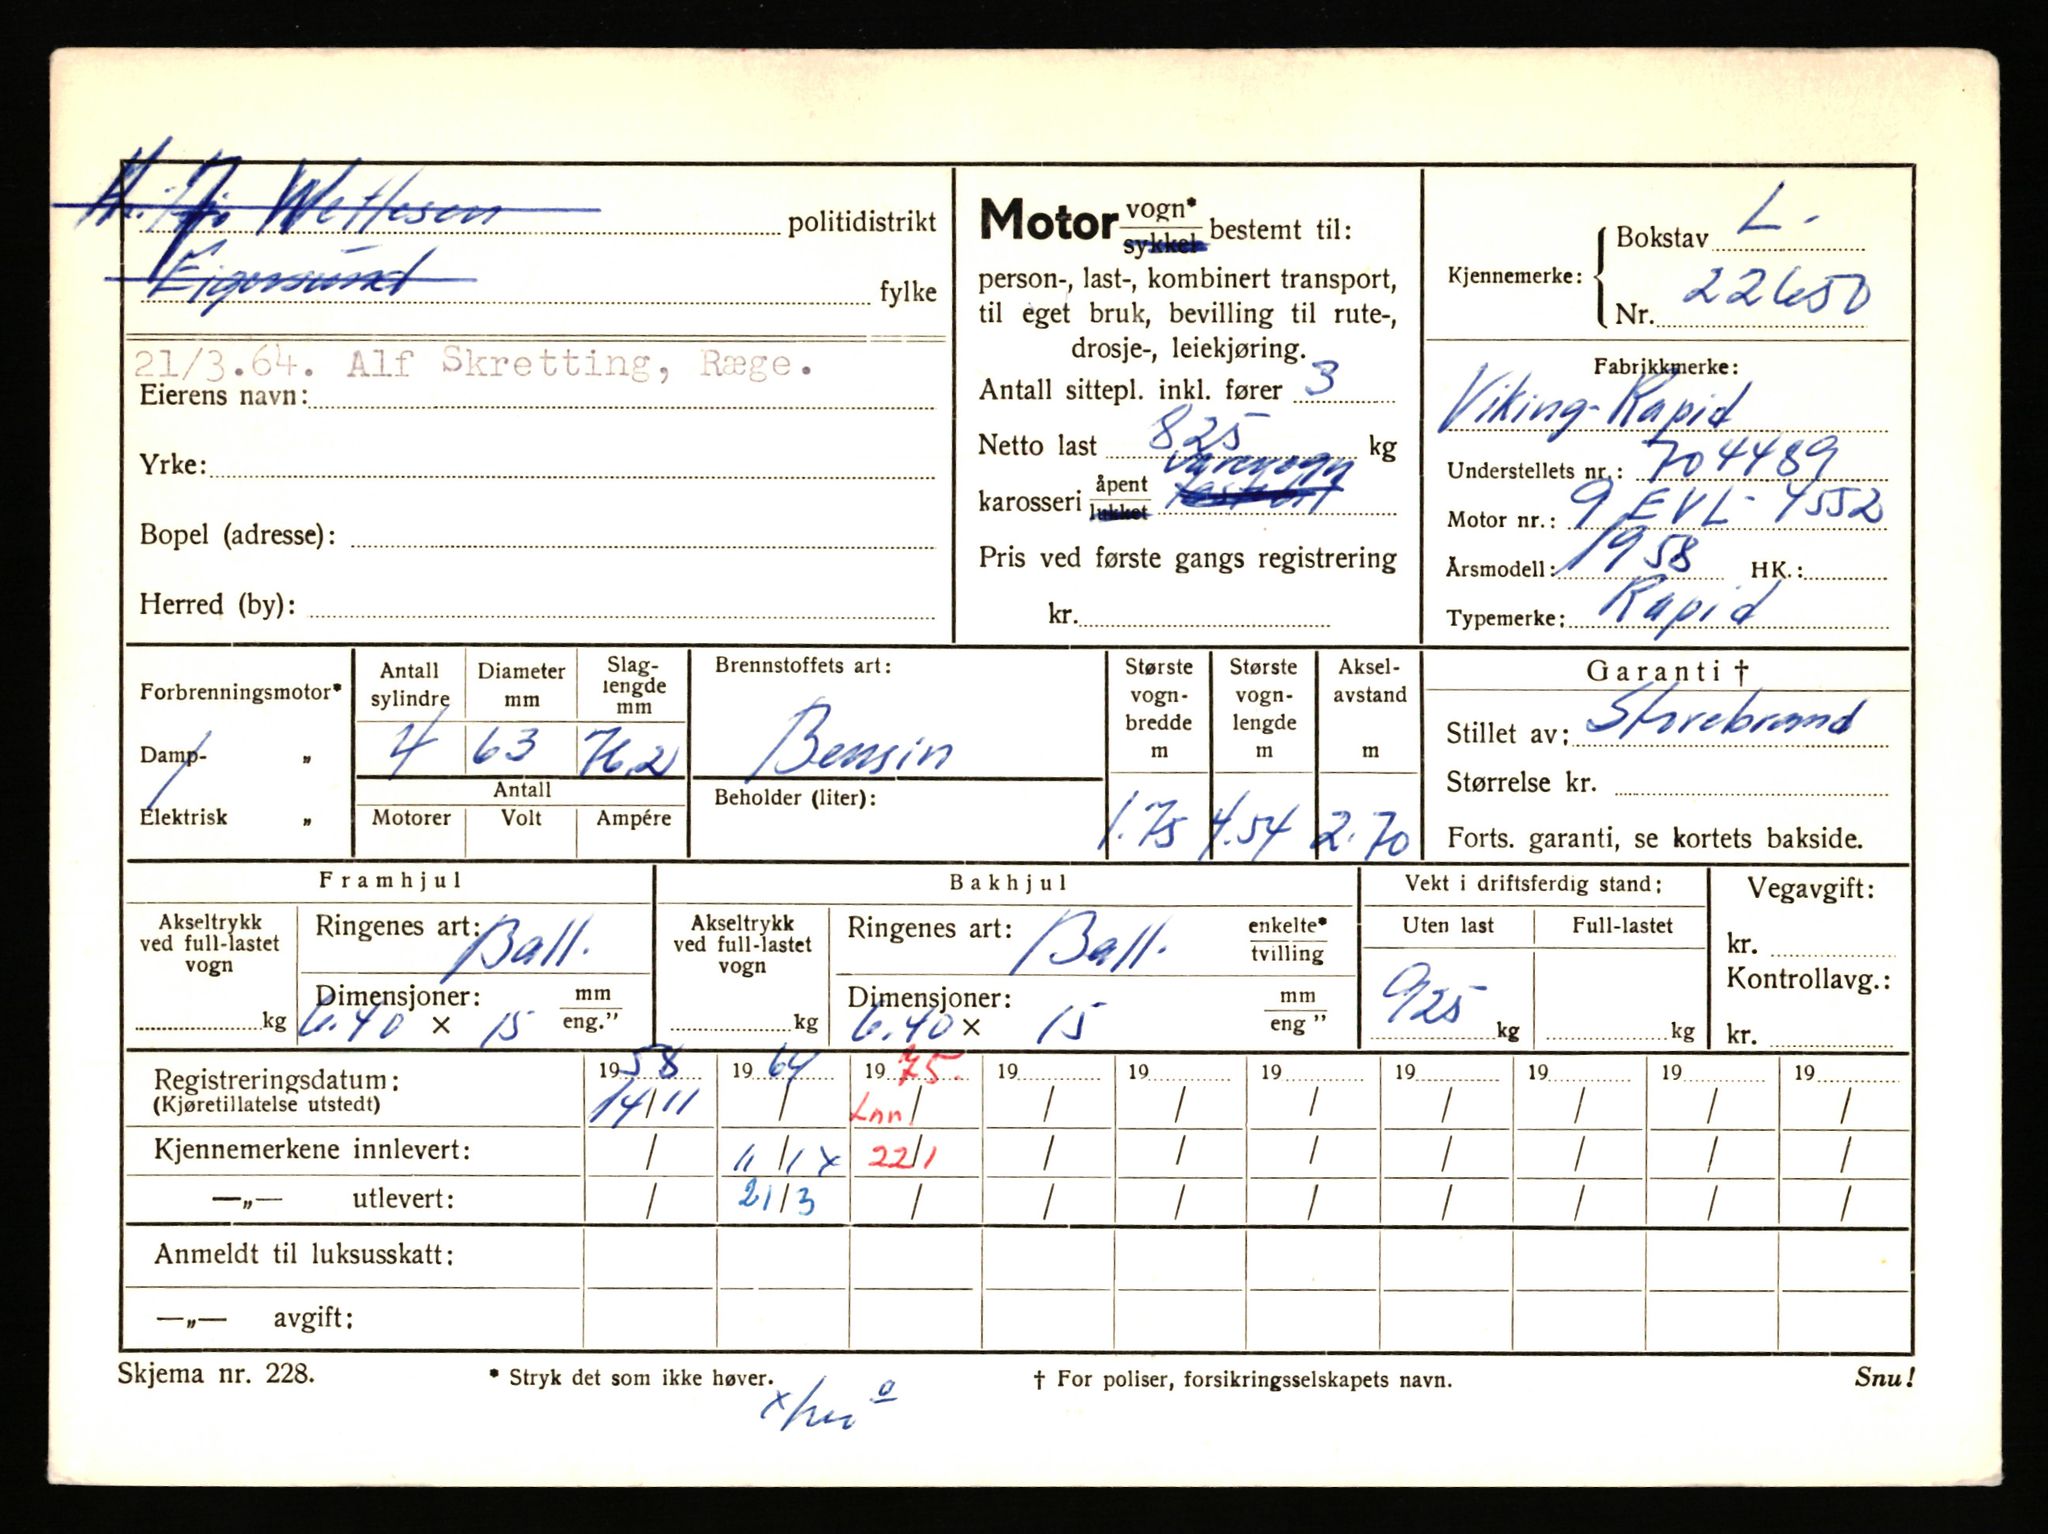 Wettesen politidistrikt
Eigersund fylke
21/3.64. Alf Skretting, Ræge.
Eierens navn:
Yrke:
Bopel (adresse):
Herred (by):
Motor vogn* sykkel bestemt til:
person-, last-, kombinert transport,
til eget bruk, bevilling til rute-,
drosje-, leiekjøring.
Antall sittepl. inkl. fører 3
Netto last 825 kg
varevogn
karosseri åpent lukket
Pris ved første gangs registrering
kr.
Kjennemerke: Bokstav L-
Nr. 22650
Fabrikkmerke:
Viking-Rapid
Understellets nr.: 704489
Motor nr.: 9 EVL-4552
Årsmodell: 1958 HK.:
Typemerke: Rapid
Forbrenningsmotor*
Damp- „
Elektrisk „
Antall sylindre Diameter mm Slag-lengde mm
4 63 76,2
Antall
Motorer Volt Ampére
Brennstoffets art:
Bensin
Beholder (liter):
Største vogn-bredde m Største vogn-lengde m Aksel-avstand m
1.75 4.54 2.70
Garanti †
Stillet av: Storebrand
Størrelse kr.
Forts. garanti, se kortets bakside.
Framhjul
Akseltrykk ved full-lastet vogn
kg
Ringenes art: Ball.
Dimensjoner: mm
6.40 × 15 eng."
Bakhjul
Akseltrykk ved full-lastet vogn
kg
Ringenes art: Ball. enkelte* tvilling
Dimensjoner: mm
6.40 × 15 eng "
Vekt i driftsferdig stand:
Uten last Full-lastet
925 kg kg
Vegavgift:
kr.
Kontrollavg.:
kr.
Registreringsdatum: 1958 1964 1975. 19 19 19 19 19 19 19
(Kjøretillatelse utstedt) 14/11 / Inn / / / / / / / /
Kjennemerkene innlevert: / 11/1 x 22/1 / / / / / / /
—„— utlevert: / 21/3 / / / / / / / /
Anmeldt til luksusskatt:
—„— avgift:
Skjema nr. 228. * Stryk det som ikke høver. † For poliser, forsikringsselskapets navn. Snu!